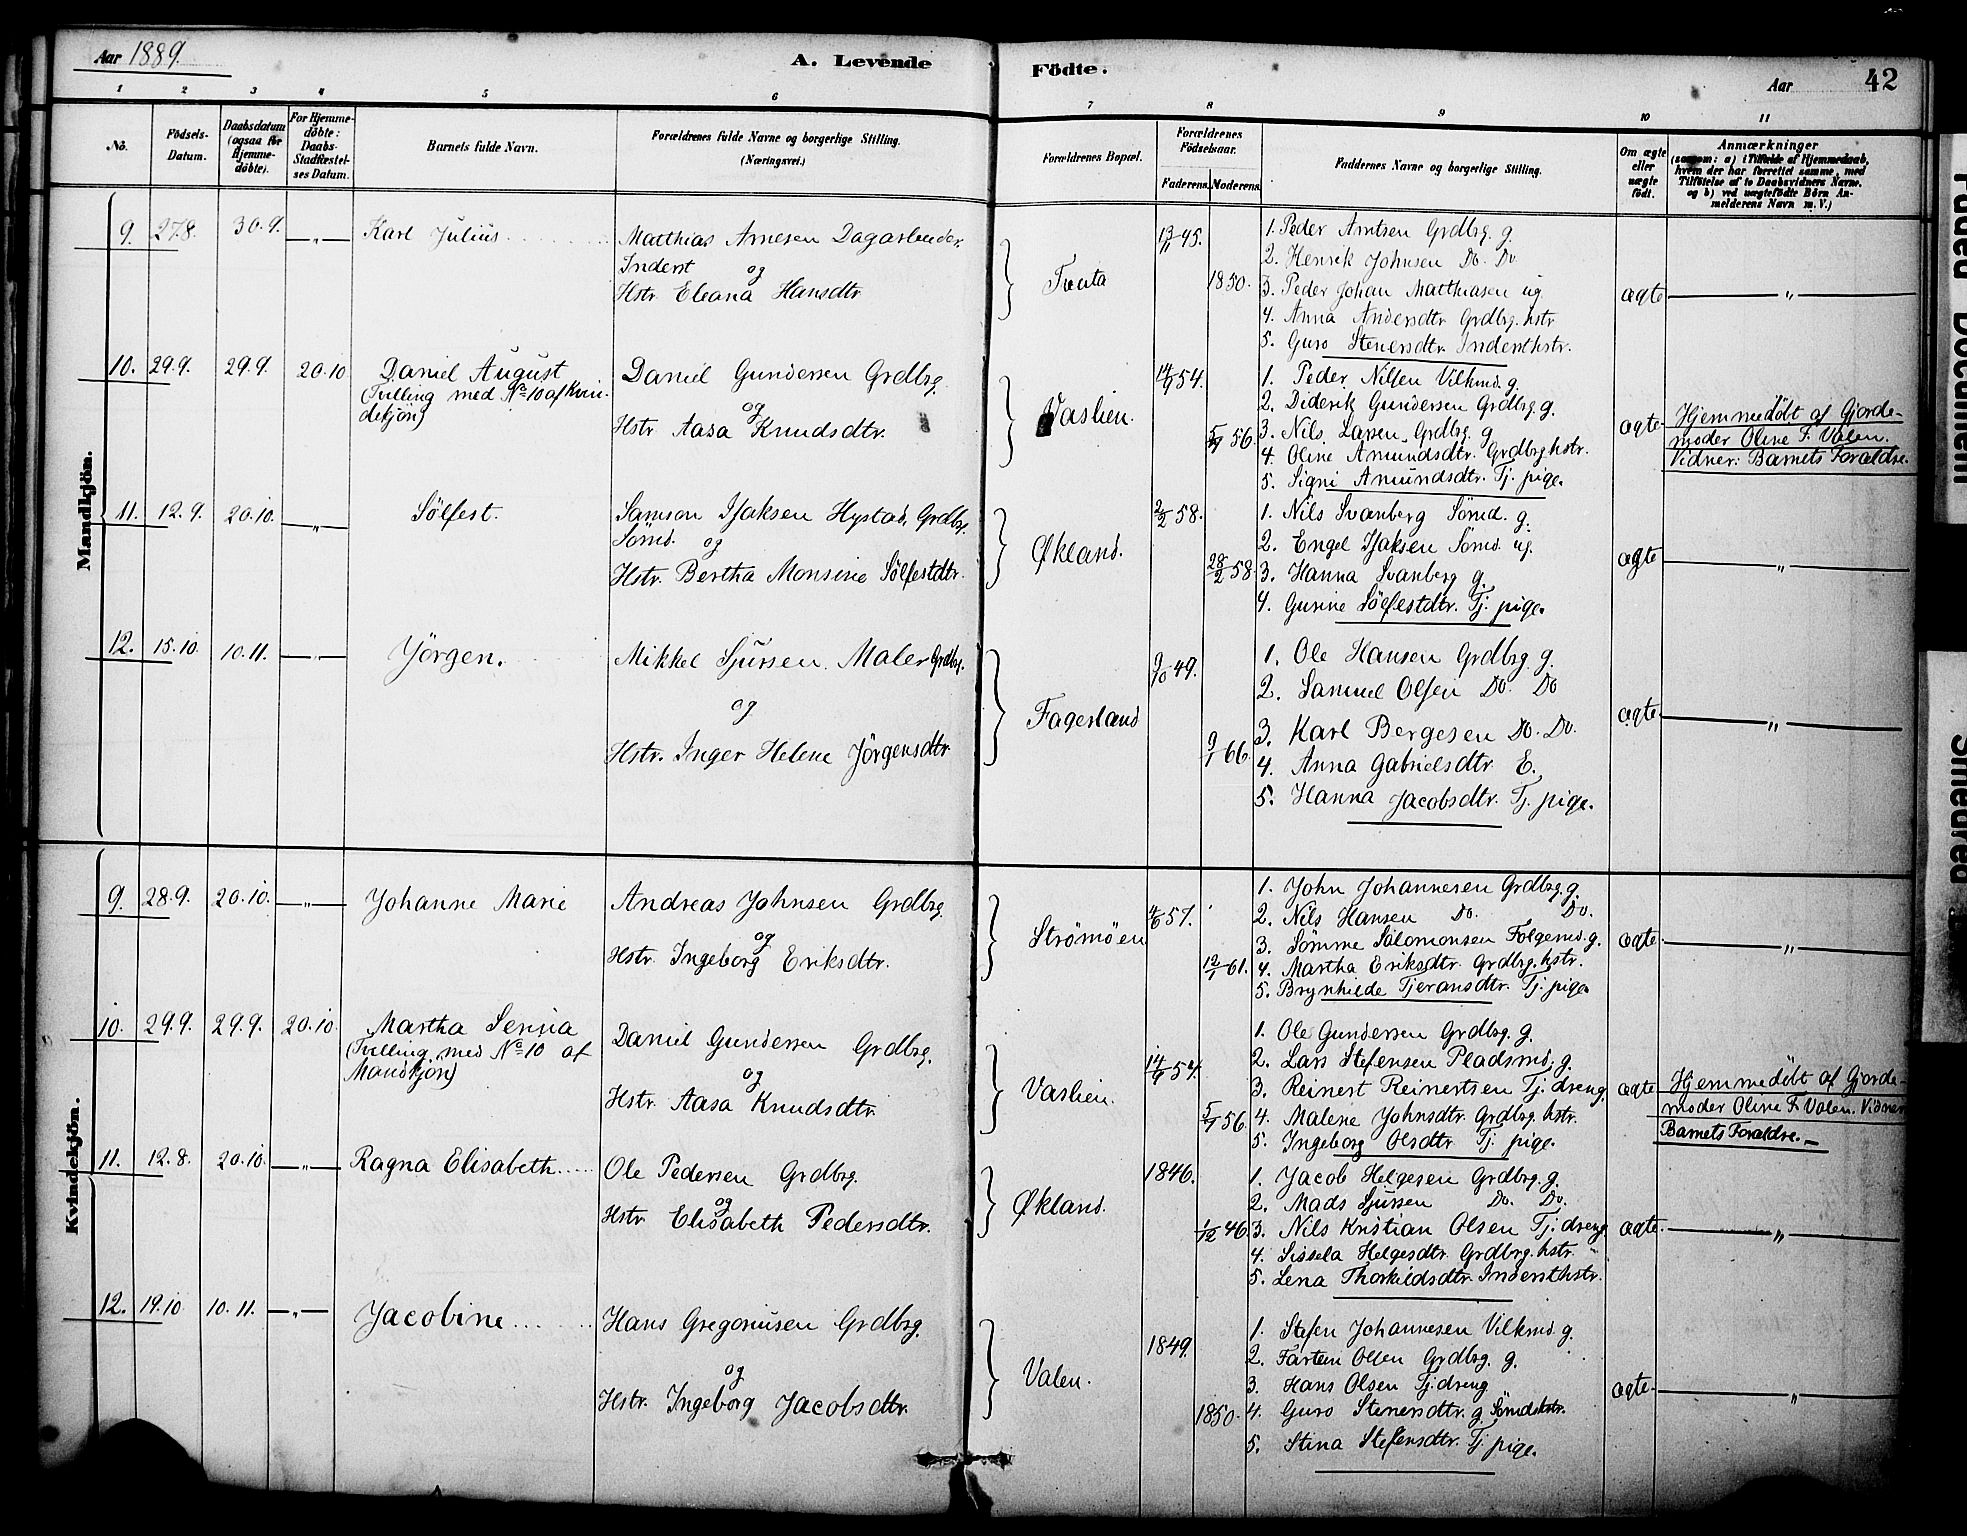 Aar 1889.
A. Levende Födte.
Aar 42
1 2 3 4 5 6 7 8 9 10 11
No.
Födsels-Datum.
Daabsdatum (ogsaa for Hjemmedöbte).
For Hjemmedöbte: Daabs-Stadfæstelses Datum.
Barnets fulde Navn.
Forældrenes fulde Navne og borgerlige Stilling.
(Næringsvei.)
Forældrenes Bopæl.
Forældrenes Födselsaar.
Faderens. Moderens.
Faddernes Navne og borgerlige Stilling.
Om ægte eller uægte födt.
Anmærkninger
(saasom: a) i Tilfælde af Hjemmedaab, hvem der har forrettet samme, med Tilföielse af to Daabsvidners Navne, og b) ved uægtefödte Börn Anmelderens Navn m. V.)
Mandkjön.
9. 27.8. 30.9. — „ — Karl Julius
Matthias Arnesen Dagarbeider
Inderst og
Hstr. Eleana Hansdtr
13/11 45.
1850.
1. Peder Arntsen Grdbrg. g.
2. Henrik Johnsen Do. Do
3. Peder Johan Matthiasen ug.
4. Anna Andersdtr Grdbrg. hstr
5. Guro Stenersdtr. Indersthstr.
ægte — „ —
10. 29.9. 29.9. 20.10 Daniel August
(Tvilling med No 10 af Kvindekjön)
Daniel Gundersen Grdbrg.
og
Hstr Aasa Knudsdtr.
Vaslien.
14/9 54.
56.
1. Peder Nilsen Vilkmd. g.
2. Diderik Gundersen Grdbrg. g.
3. Nils Larsen Grdbrg. g
4. Oline Amundsdtr. Grdbrg hstr.
5. Signi Amundsdtr. Tj. pige.
ægte
Hjemmedøbt af Gjordemoder Oline F. Valen.
Vidner: Barnets Forældre.
11. 12.9. 20.10. — „ — Sølfest.
Samson Isaksen Hystad, Grdbrg.
Sömd. og
Hstr. Bertha Monsine Sölfestdtr.
Økland.
2/2 58.
28/2 58.
1. Nils Svanberg Sömd. g.
2. Engel Isaksen Sömd. ug.
3. Hanna Svanberg g.
4. Gurine Sölfestdtr. Tj. pige.
ægte — „ —
12. 15.10. 10.11. — „ — Jörgen.
Mikkel Sjursen Maler Grdbrg.
og
Hstr. Inger Helene Jörgensdtr
Fagerland
9/10 49.
9/1 66.
1. Ole Hansen Grdbrg. g.
2. Samuel Olsen Do. Do
3. Karl Bergesen Do. Do.
4. Anna Gabrielsdtr E.
5. Hanna Jacobsdtr. Tj. pige.
ægte. — „ —
Kvindekjön.
9. 28.9. 20.10. — „ — Johanne Marie
Andreas Johnsen Grdbrg.
og
Hstr. Ingeborg Eriksdtr.
Strömöen
57.
12/1 61.
1. John Johannesen Grdbrg. g.
2. Nils Hansen Do. Do.
3. Sömme Salomonsen Folgemd. g.
4. Martha Eriksdtr. Grdbrg. hstr.
5. Brynhilde Tjeransdtr. Tj. pige
ægte. — „ —
10. 29.9. 29.9. 20.10. Martha Serina
(Tvilling med No 10 af Mandkjön)
Daniel Gundersen Grdbrg.
og
Hstr. Aasa Knudsdtr
Vaslien.
14/9 54.
56.
1. Ole Gundersen Grdbrg. g.
2. Lars Stefensen Pladsmd. g.
3. Reinert Reinertsen Tj. dreng
4. Malene Johnsdtr. Grdbrg. hstr.
5. Ingeborg Olsdtr Tj. pige.
ægte
Hjemmedöbt af Gjordemoder Oline F. Valen. Vidner
Barnets Forældre. —
11. 12.8. 20.10. — „ — Ragna Elisabeth
Ole Pedersen Grdbrg.
og
Hstr Elisabeth Pedersdtr.
Økland.
1846.
1/12 46.
1. Jacob Helgesen Grdbrg. g.
2. Mads Sjursen Do. Do.
3. Nils Kristian Olsen Tj. dreng
4. Sissela Helgesdtr. Grdbrg. hstr.
5. Lena Thorkildsdtr. Indersthstr.
ægte. — „ —
12. 19.10 10.11. — „ — Jacobine
Hans Gregoriusen Grdbrg.
og
Hstr. Ingeborg Jacobsdtr.
Valen.
1849.
1850.
1. Stefen Johannesen Vilkmd. g.
2. Fartein Olsen Grdbrg. g.
3. Hans Olsen Tj. dreng
4. Guro Stenersdtr. g. Sömdshstr.
5. Stina Stefensdtr. Tj. pige.
ægte. — „ —
Faded Document
Smeared